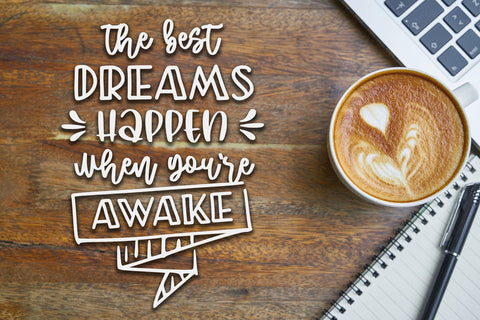 The best
DREAMS
HAPPEN
when you're
AWAKE